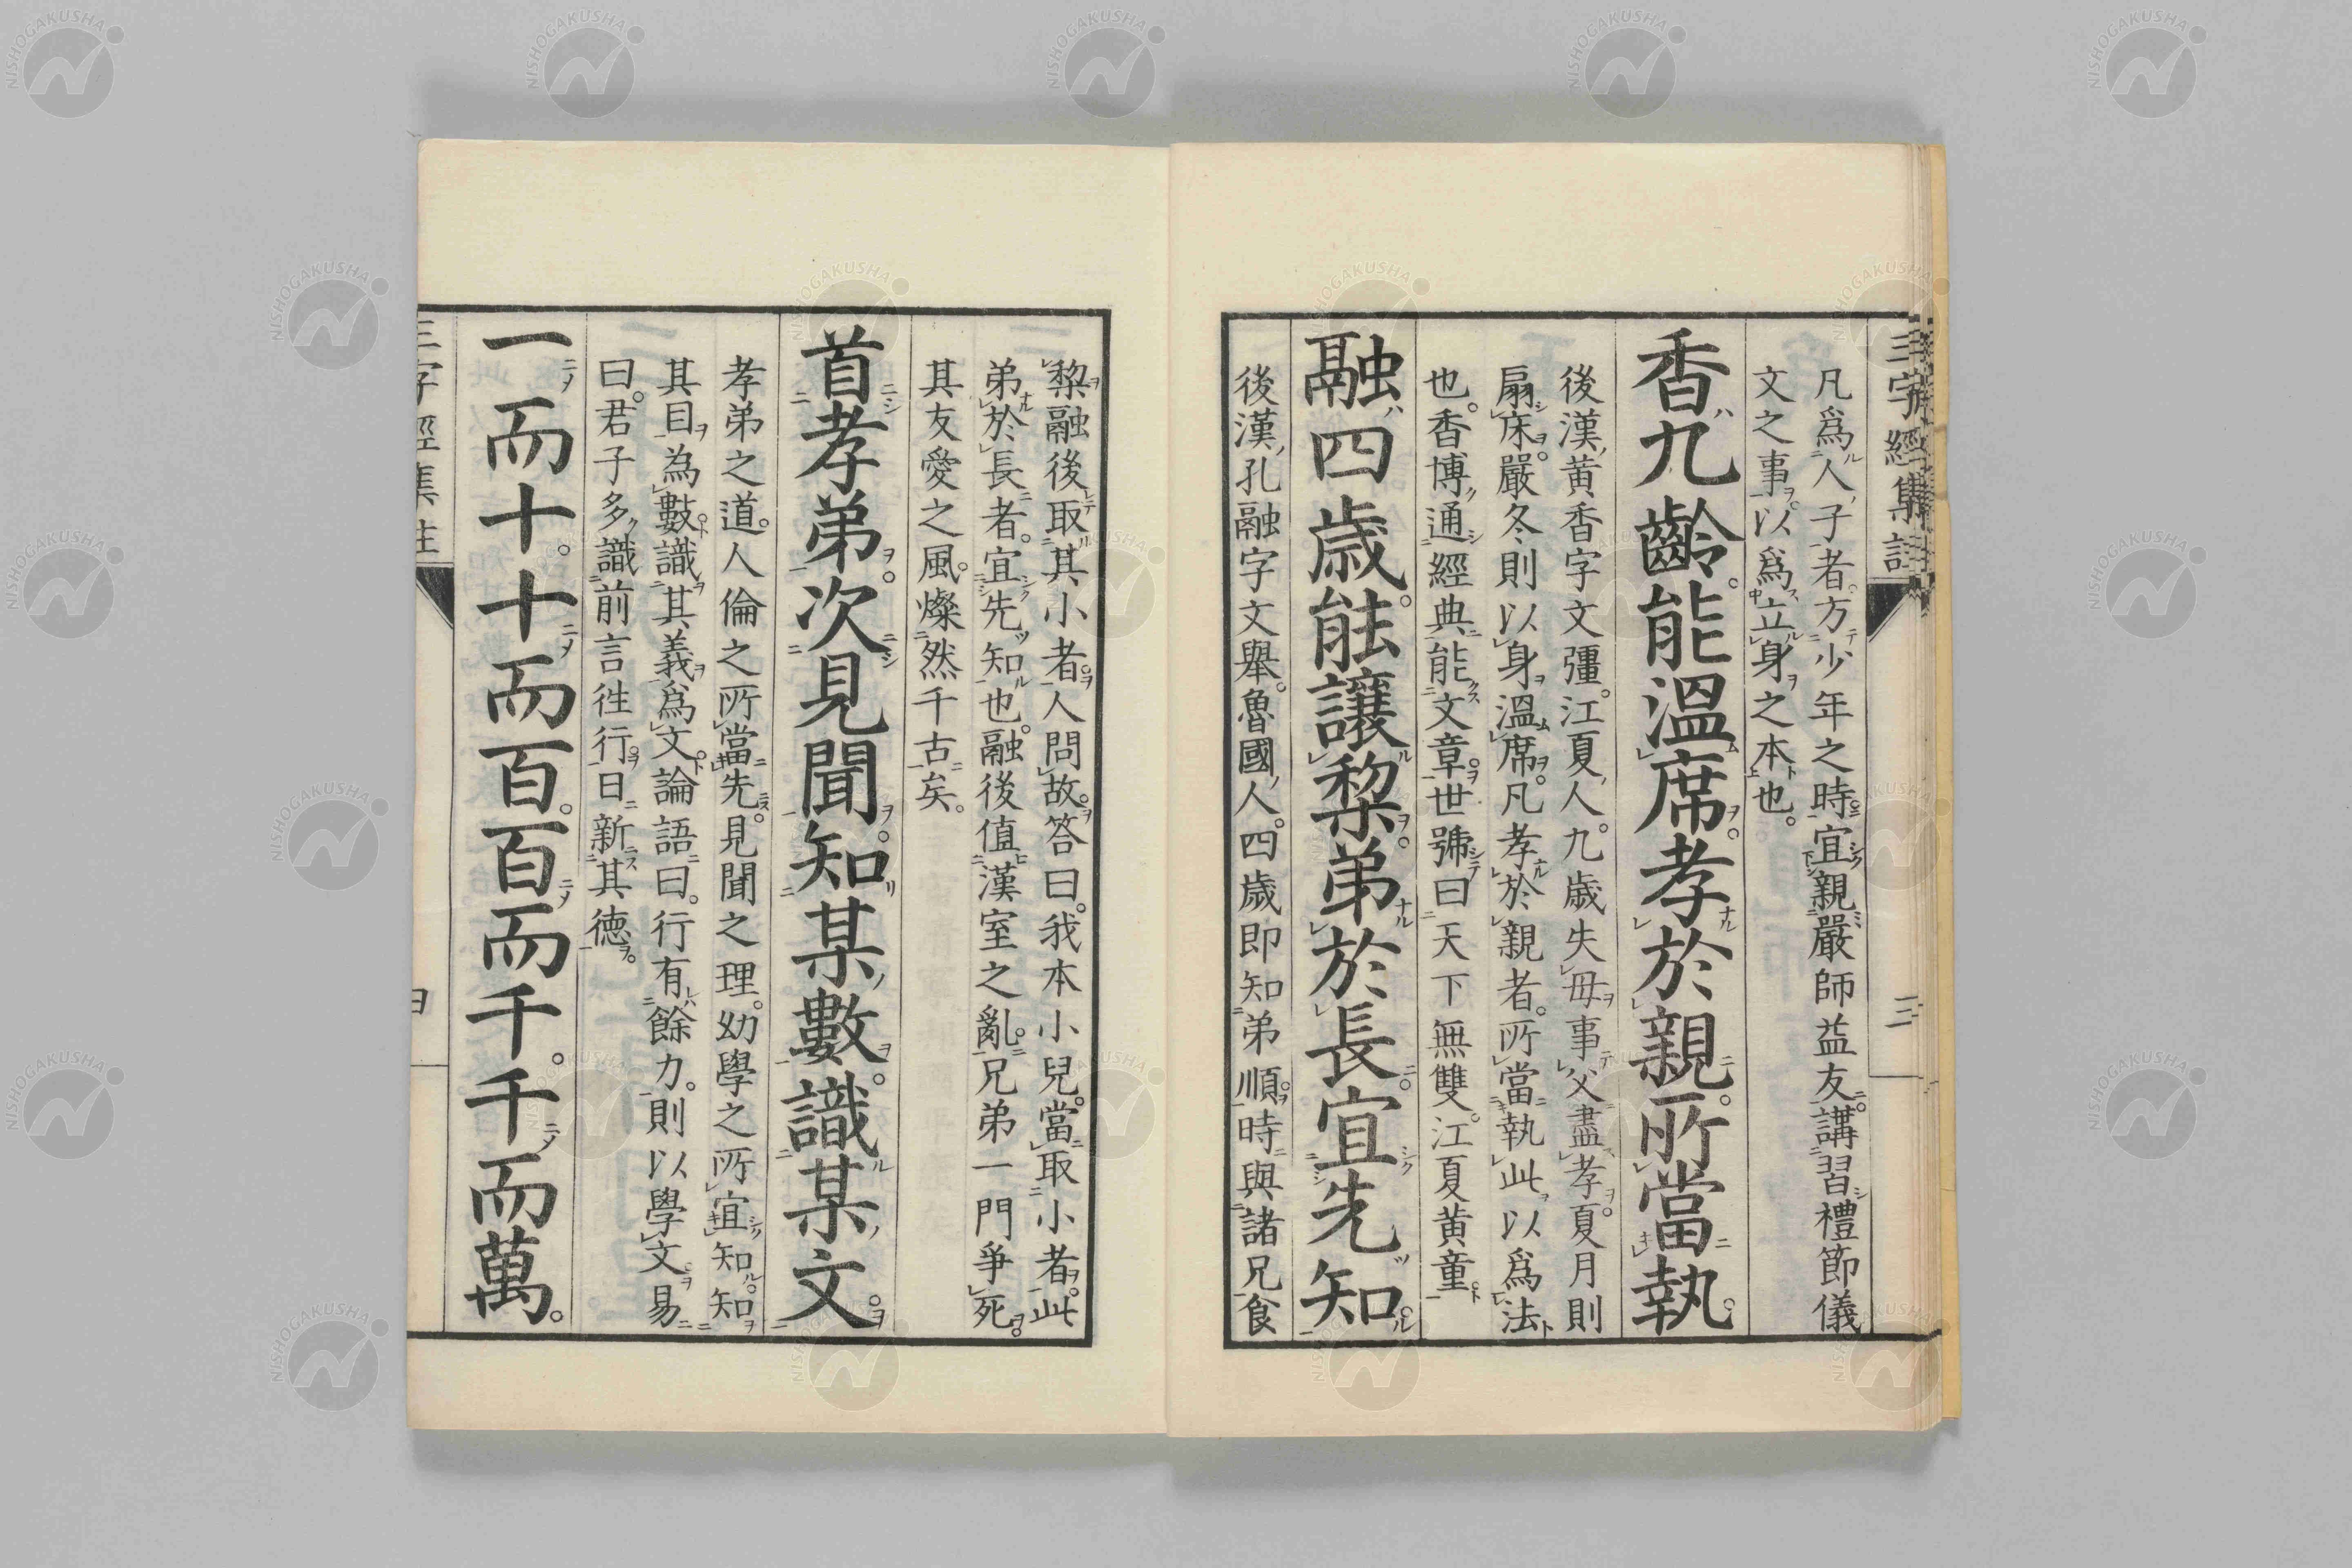 三字經集註
三
凡爲人子者方少年之時。宜親嚴師益友。講習禮節儀
文之事。以爲立身之本也。
香九齡。能溫席。孝於親。所當執。
後漢黄香字文彊。江夏人。九歳失母事父盡孝。夏月則
扇床。嚴冬則以身溫席。凡孝於親者。所當執此以爲法
也。香博通經典能文章。世號曰天下無雙。江夏黄童。
融四歳。能讓棃。弟於長。宜先知。
後漢孔融字文舉。魯國人。四歳即知弟順。時與諸兄食
棃融後取其小者。人問故。答曰。我本小兒。當取小者。此
弟於長者。宜先知也。融後值漢室之亂。兄弟一門爭死。
其友愛之風。燦然千古矣。
首孝弟。次見聞。知某數。識某文。
孝弟之道。人倫之所當先。見聞之理。幼學之所宜知。知
其目為數。識其義爲文。論語曰。行有餘力。則以學文。易
曰。君子多識前言徃行。日新其德。
一而十。十而百。百而千。千而萬。
三字經集註